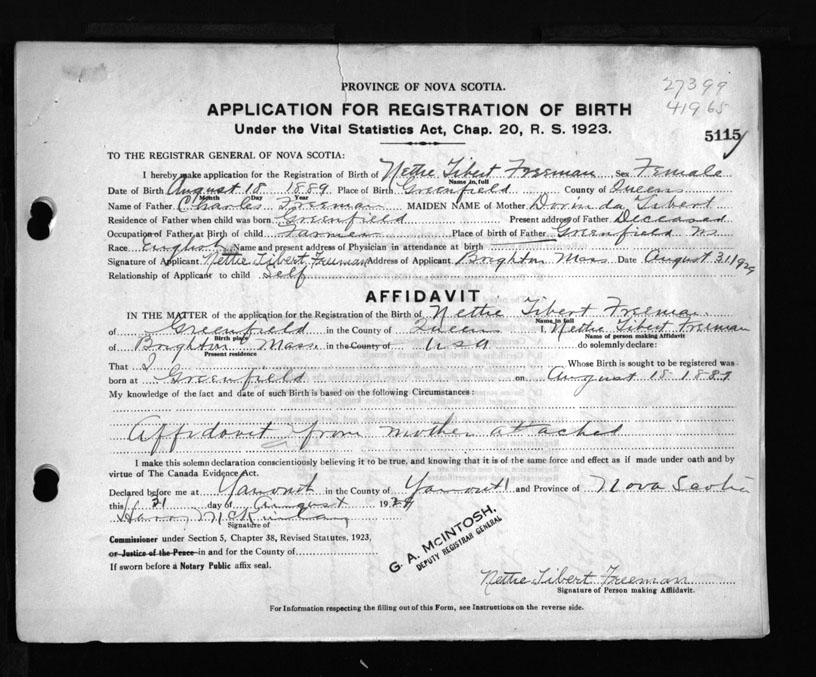 PROVINCE OF NOVA SCOTIA.
27399
41965
APPLICATION FOR REGISTRATION OF BIRTH
Under the Vital Statistics Act, Chap. 20, R. S. 1923.
5115
TO THE REGISTRAR GENERAL OF NOVA SCOTIA:
I hereby make application for the Registration of Birth of Nettie Tibert Freeman Sex Female
Name in full
Date of Birth August 18 1889 Place of Birth Greenfield County of Queens
Month Day Year
Name of Father Charles Freeman MAIDEN NAME of Mother Dorinda Tibert
Residence of Father when child was born Greenfield Present address of Father Deceased
Occupation of Father at Birth of child Farmer Place of birth of Father Greenfield NS
Race English Name and present address of Physician in attendance at birth
Signature of Applicant Nettie Tibert Freeman Address of Applicant Brighton Mass Date August 31 1929
Relationship of Applicant to child Self
AFFIDAVIT
IN THE MATTER of the application for the Registration of the Birth of Nettie Tibert Freeman
Name in full
of Greenfield in the County of Queens I, Nettie Tibert Freeman
Birth place Name of person making Affidavit
of Brighton Mass. in the County of USA do solemnly declare:
Present residence
That I Whose Birth is sought to be registered was
born at Greenfield on August 18 1889
My knowledge of the fact and date of such Birth is based on the following Circumstances:
Affidavit from mother attached
I make this solemn declaration conscientiously believing it to be true, and knowing that it is of the same force and effect as if made under oath and by
virtue of The Canada Evidence Act.
Declared before me at Yarmouth in the County of Yarmouth and Province of Nova Scotia
this 31 day of August 1929
Signature of
Commissioner under Section 5, Chapter 38, Revised Statutes, 1923,
or Justice of the Peace in and for the County of
If sworn before a Notary Public affix seal.
G. A. McINTOSH,
DEPUTY REGISTRAR GENERAL
Nettie Tibert Freeman
Signature of Person making Affidavit.
For Information respecting the filling out of this Form, see Instructions on the reverse side.